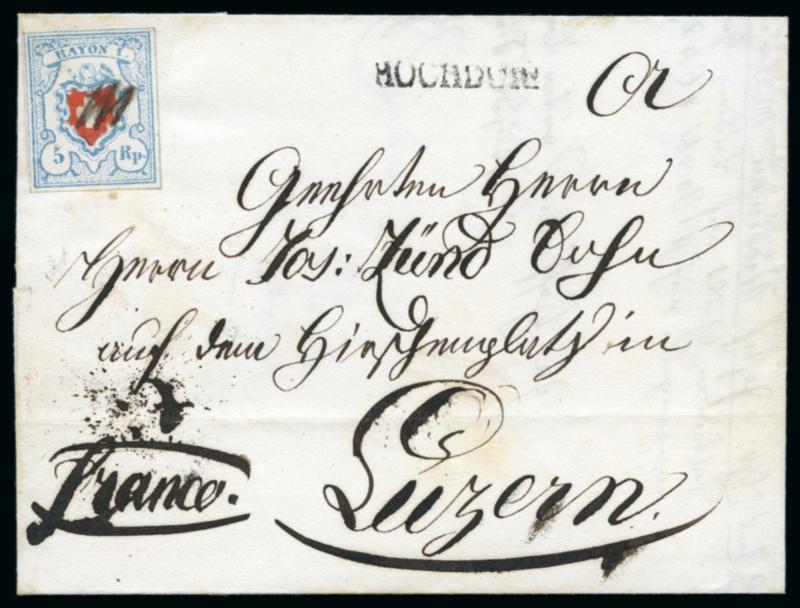 RAYON I.
5 Rp.
HOCHDORF
Geehrten Herrn
Herrn Jos: Zünd Sohn
auf dem Hirschenplatz in
Luzern.
Franco.